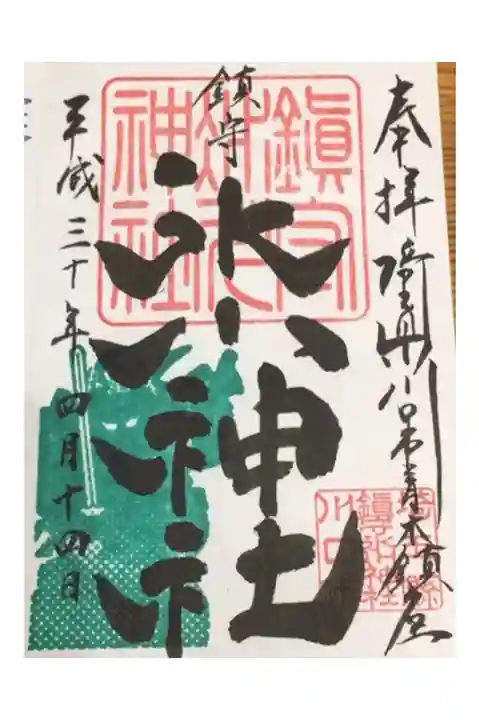 奉拝 埼玉県川口市青木鎮座
鎮守
氷川神社
平成三十年四月十四日
鎮守
氷川
神社